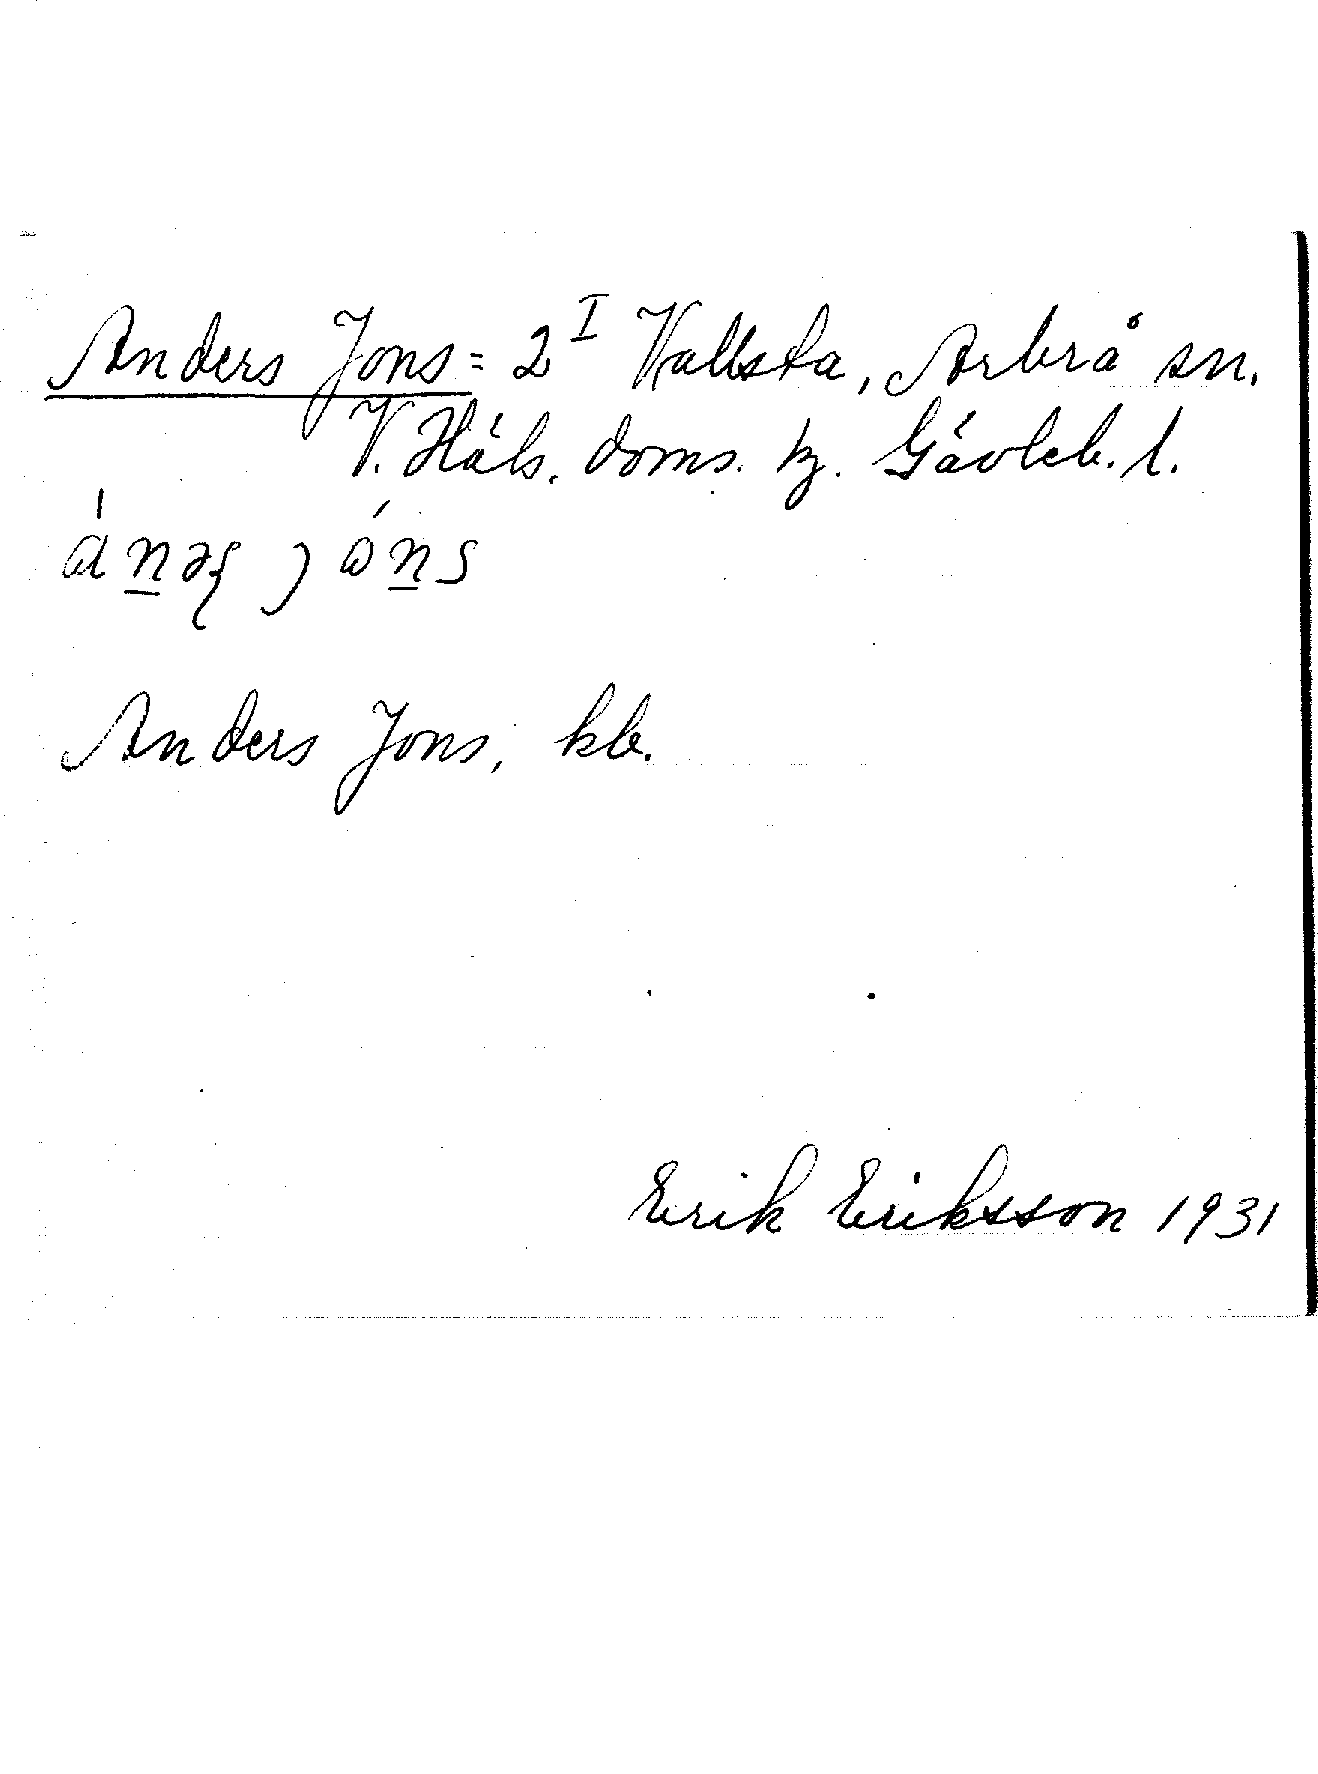 Anders Jons = 2 I Vallsta, Arbrå sn.
V. Häls. doms. tg. Gävleb. l.
Anders Jons, kb.
Erik Eriksson 1931